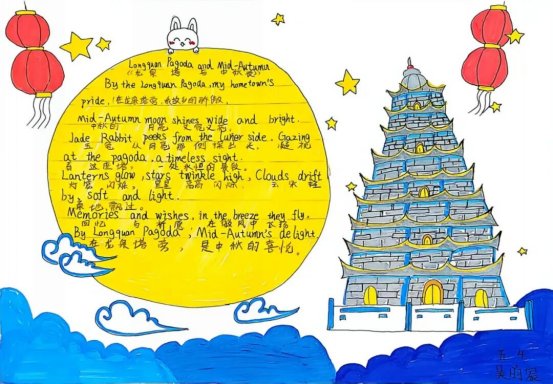 Longquan Pagoda and Mid-Autumn
《龙泉塔与中秋夜》
By the Longquan Pagoda, my hometown's
pride, 在龙泉塔旁，我故乡的骄傲
Mid-Autumn moon shines wide and bright.
中秋的月亮又宽又亮
Jade Rabbit peeks from the lunar side. Gazing
玉兔从月亮那侧探出头，凝视
at the pagoda, a timeless sight.
着这座塔，一处永恒的景致
Lanterns glow, stars twinkle high, Clouds drift
灯笼闪烁，星星高高闪烁，云朵轻
by soft and light.
柔地飘过。
Memories and wishes, in the breeze they fly.
回忆与祈愿，在微风中飞扬
By Longquan Pagoda, Mid-Autumn's delight
在龙泉塔旁，是中秋的喜悦。